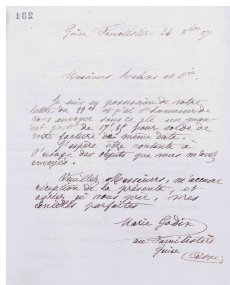 231
Guise Familistère 24 8bre 87
Messieurs et Cie,
Je suis en possession de votre
lettre de 19 et j'ai l'honneur de
vous envoyer sous ce pli un man-
dat poste de 17.15 pour solde de
votre facture du même date.
J'espère être contente à
l'usage des objets que vous m'avez
envoyés.
Veuillez, Messieurs, m'accuser
réception de la présente, et
agréer je vous prie, mes
civilités parfaites
Marie Godin
au Familistère
Guise (Aisne)